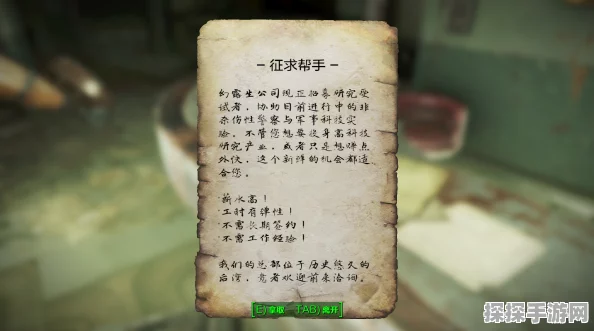 – 征求帮手 –
幻露生公司现正招募研究受
试者，协助目前进行中的非
杀伤性警察与军事科技实
验。不管您想要投身高科技
研究产业，或者只是想赚点
外快，这个新鲜的机会都适
合您。
·薪水高！
·工时有弹性！
·不需长期签约！
·不需工作经验！
我们的总部位于历史悠久的
后湾，意者欢迎前来洽询。
E)拿取 TAB)离开
探探手游网